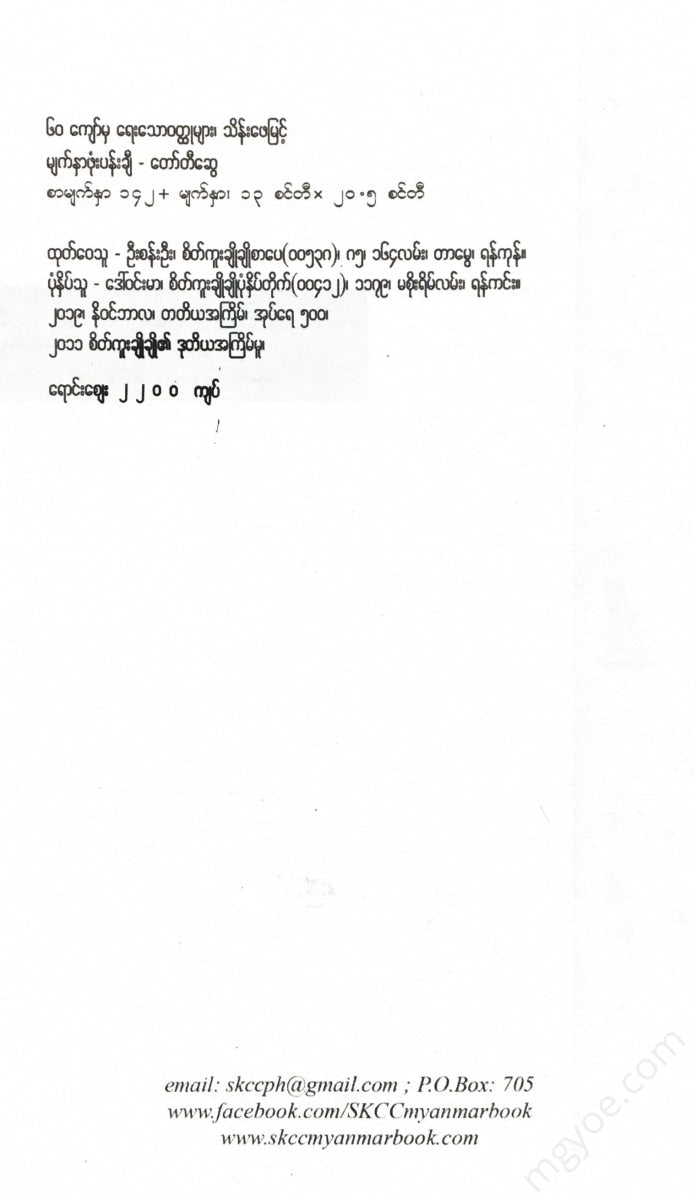 ၆၀ ကျော်မှ ရေးသောဝတ္ထုများ၊ သိန်းဖေမြင့်
မျက်နှာဖုံးပန်းချီ - တော်တီဆွေ
စာမျက်နှာ ၁၄၂ + မျက်နှာ၊ ၁၃ စင်တီ × ၂၀.၅ စင်တီ
ထုတ်ဝေသူ - ဦးစန်းဦး၊ စိတ်ကူးချိုချိုစာပေ(၀၀၅၃၈)၊ ၈၅၊ ၁၆၄လမ်း၊ တာမွေ၊ ရန်ကုန်။
ပုံနှိပ်သူ - ဒေါ်ဝင်းမာ၊ စိတ်ကူးချိုချိုပုံနှိပ်တိုက်(၀၀၄၁၂)၊ ၁၁၇၉၊ မစိုးရိမ်လမ်း၊ ရန်ကင်း။
၂၀၁၉၊ နိုဝင်ဘာလ၊ တတိယအကြိမ်၊ အုပ်ရေ ၅၀၀၊
၂၀၁၁ စိတ်ကူးချိုချို၏ ဒုတိယအကြိမ်မူ၊
ရောင်းဈေး ၂၂၀၀ ကျပ်
email: skccph@gmail.com ; P.O.Box: 705
www.facebook.com/SKCCmyanmarbook
www.skccmyanmarbook.com
mgyoe.com